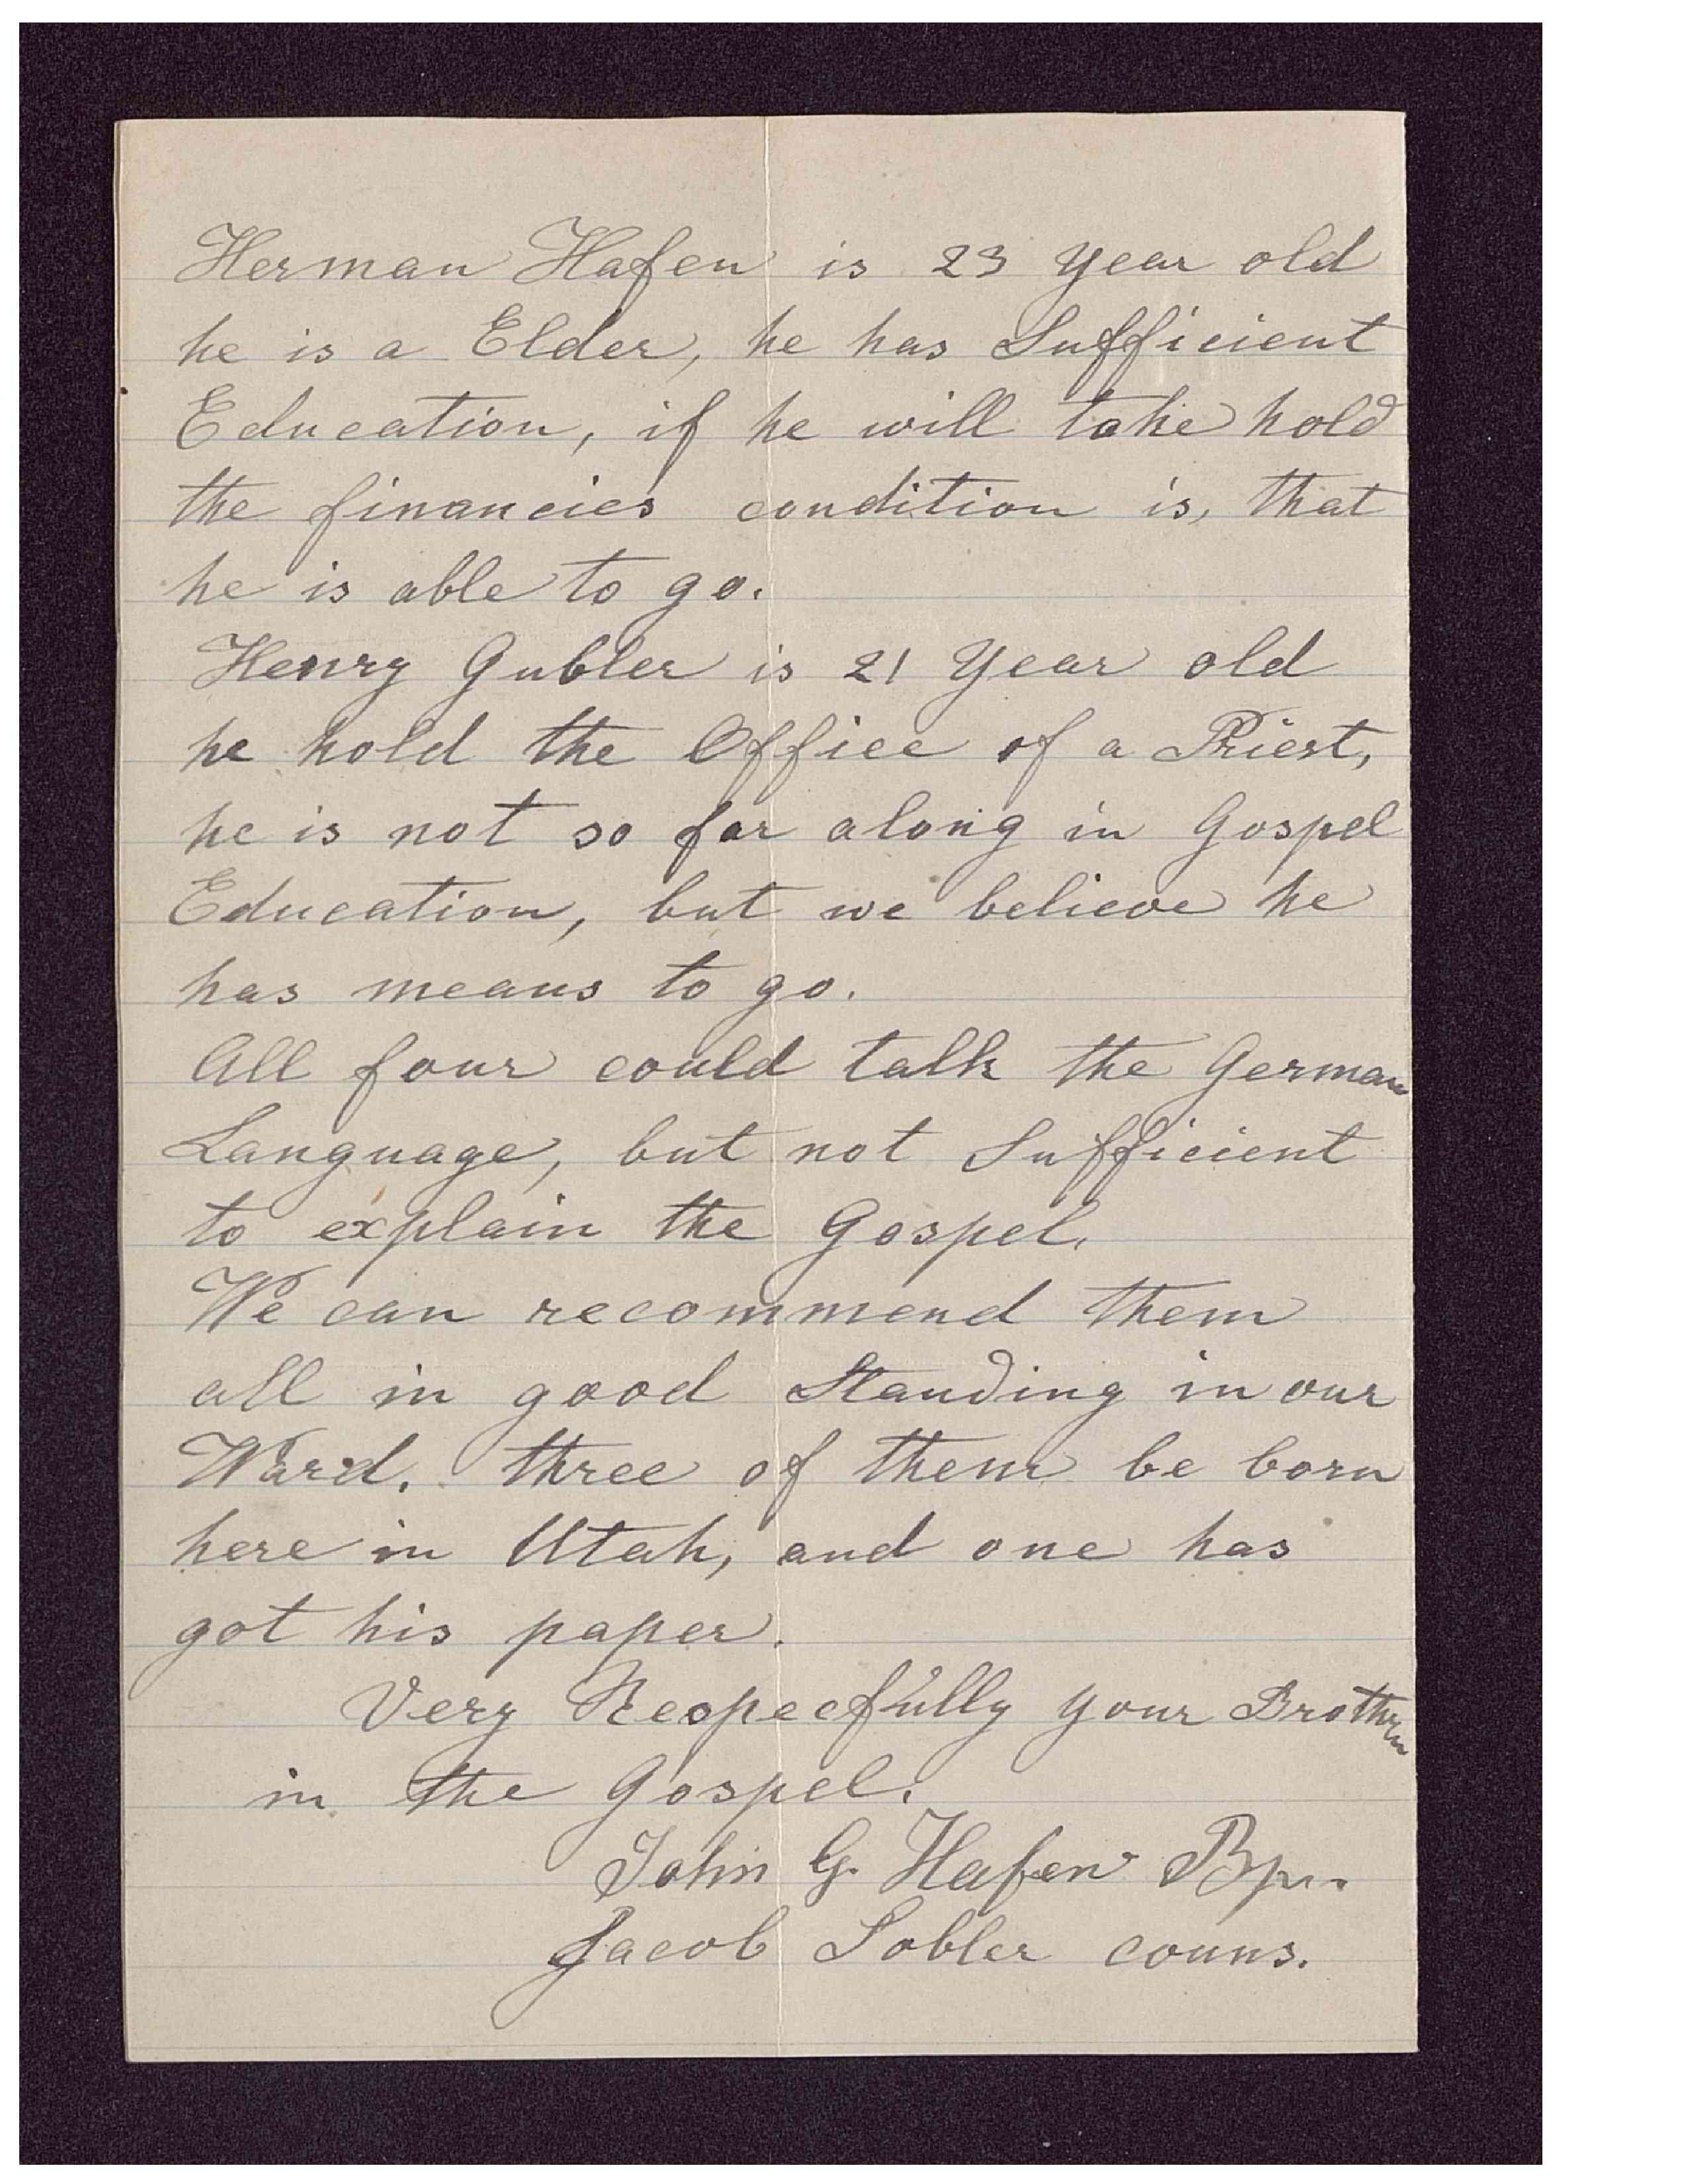 Herman Hafen is 23 year old
he is a Elder, he has Sufficient
Education, if he will take hold
the financies condition is, that
he is able to go.
Henry Gubler is 21 year old
he hold the Office of a Priest,
he is not so far along in Gospel
Education, but we believe he
has means to go.
All four could talk the German
Language, but not Sufficient
to explain the Gospel.
We can recommend them
all in good Standing in our
Ward. three of them be born
here in Utah, and one has
got his paper.
Very Respecfully your Brothren
in the Gospel.
John G. Hafen Bp.
Jacob Tobler couns.